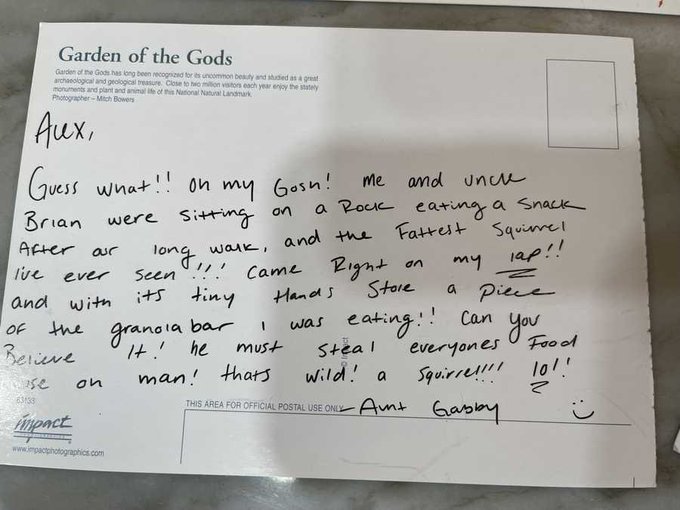 Garden of the Gods
Garden of the Gods has long been recognized for its uncommon beauty and studied as a great
archaeological and geological treasure. Close to two million visitors each year enjoy the stately
monuments and plant and animal life of this National Natural Landmark.
Photographer – Mitch Bowers
Alex,
Guess what!! Oh my Gosh! me and uncle
Brian were sitting on a Rock eating a snack
After our long walk, and the Fattest Squirrel
I've ever seen!!! Came Right on my lap!!
and with its tiny Hands Stole a piece
of the granola bar I was eating!! Can you
Believe It! he must steal everyones Food
on man! thats wild! a Squirrel!!! lol!!
63133
THIS AREA FOR OFFICIAL POSTAL USE ONLY
- Aunt Gabby :)
impact
www.impactphotographics.com